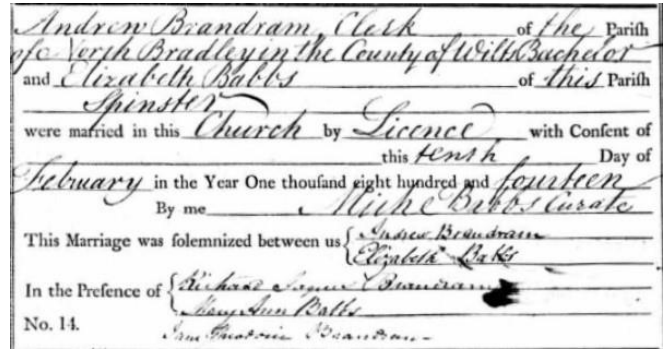 Andrew Brandram, Clerk of the Parish
of North Bradley in the County of Wilts Bachelor
and Elizabeth Babbs of this Parish
Spinster
were married in this Church by Licence with Consent of
this tenth Day of
February in the Year One thousand eight hundred and fourteen
By me Babbs Curate
This Marriage was solemnized between us { Andrew Brandram
Elizabeth Babbs
In the Presence of { Richard Brandram
Mary Ann Babbs
No. 14. Brandram